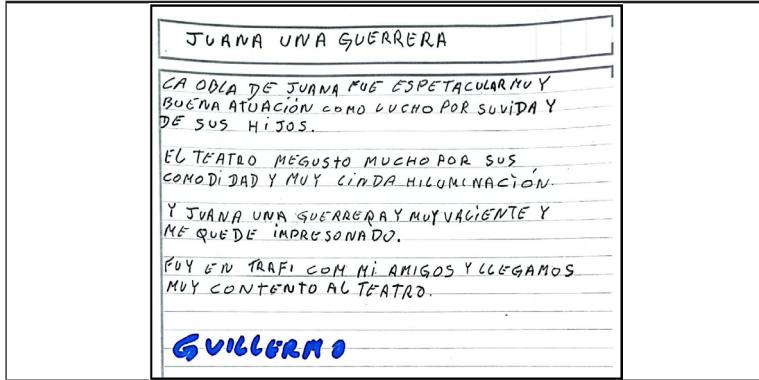 JUANA UNA GUERRERA
LA OBLA DE JUANA FUE ESPETACULAR MUY
BUENA ATUACIÓN COMO LUCHO POR SUVIDA Y
DE SUS HiJOS.
EL TEATRO MEGUSTO MUCHO POR SUS
COMODiDAD Y MUY LiNDA HILUMINACIÓN.
Y JUANA UNA GUERRERA Y MUY VALiENTE Y
ME QUEDE iMPRESONADO.
FUY EN TRAFI COM Mi AMIGOS Y LLEGAMOS
MUY CONTENTO AL TEATRO.
GUILLERMO